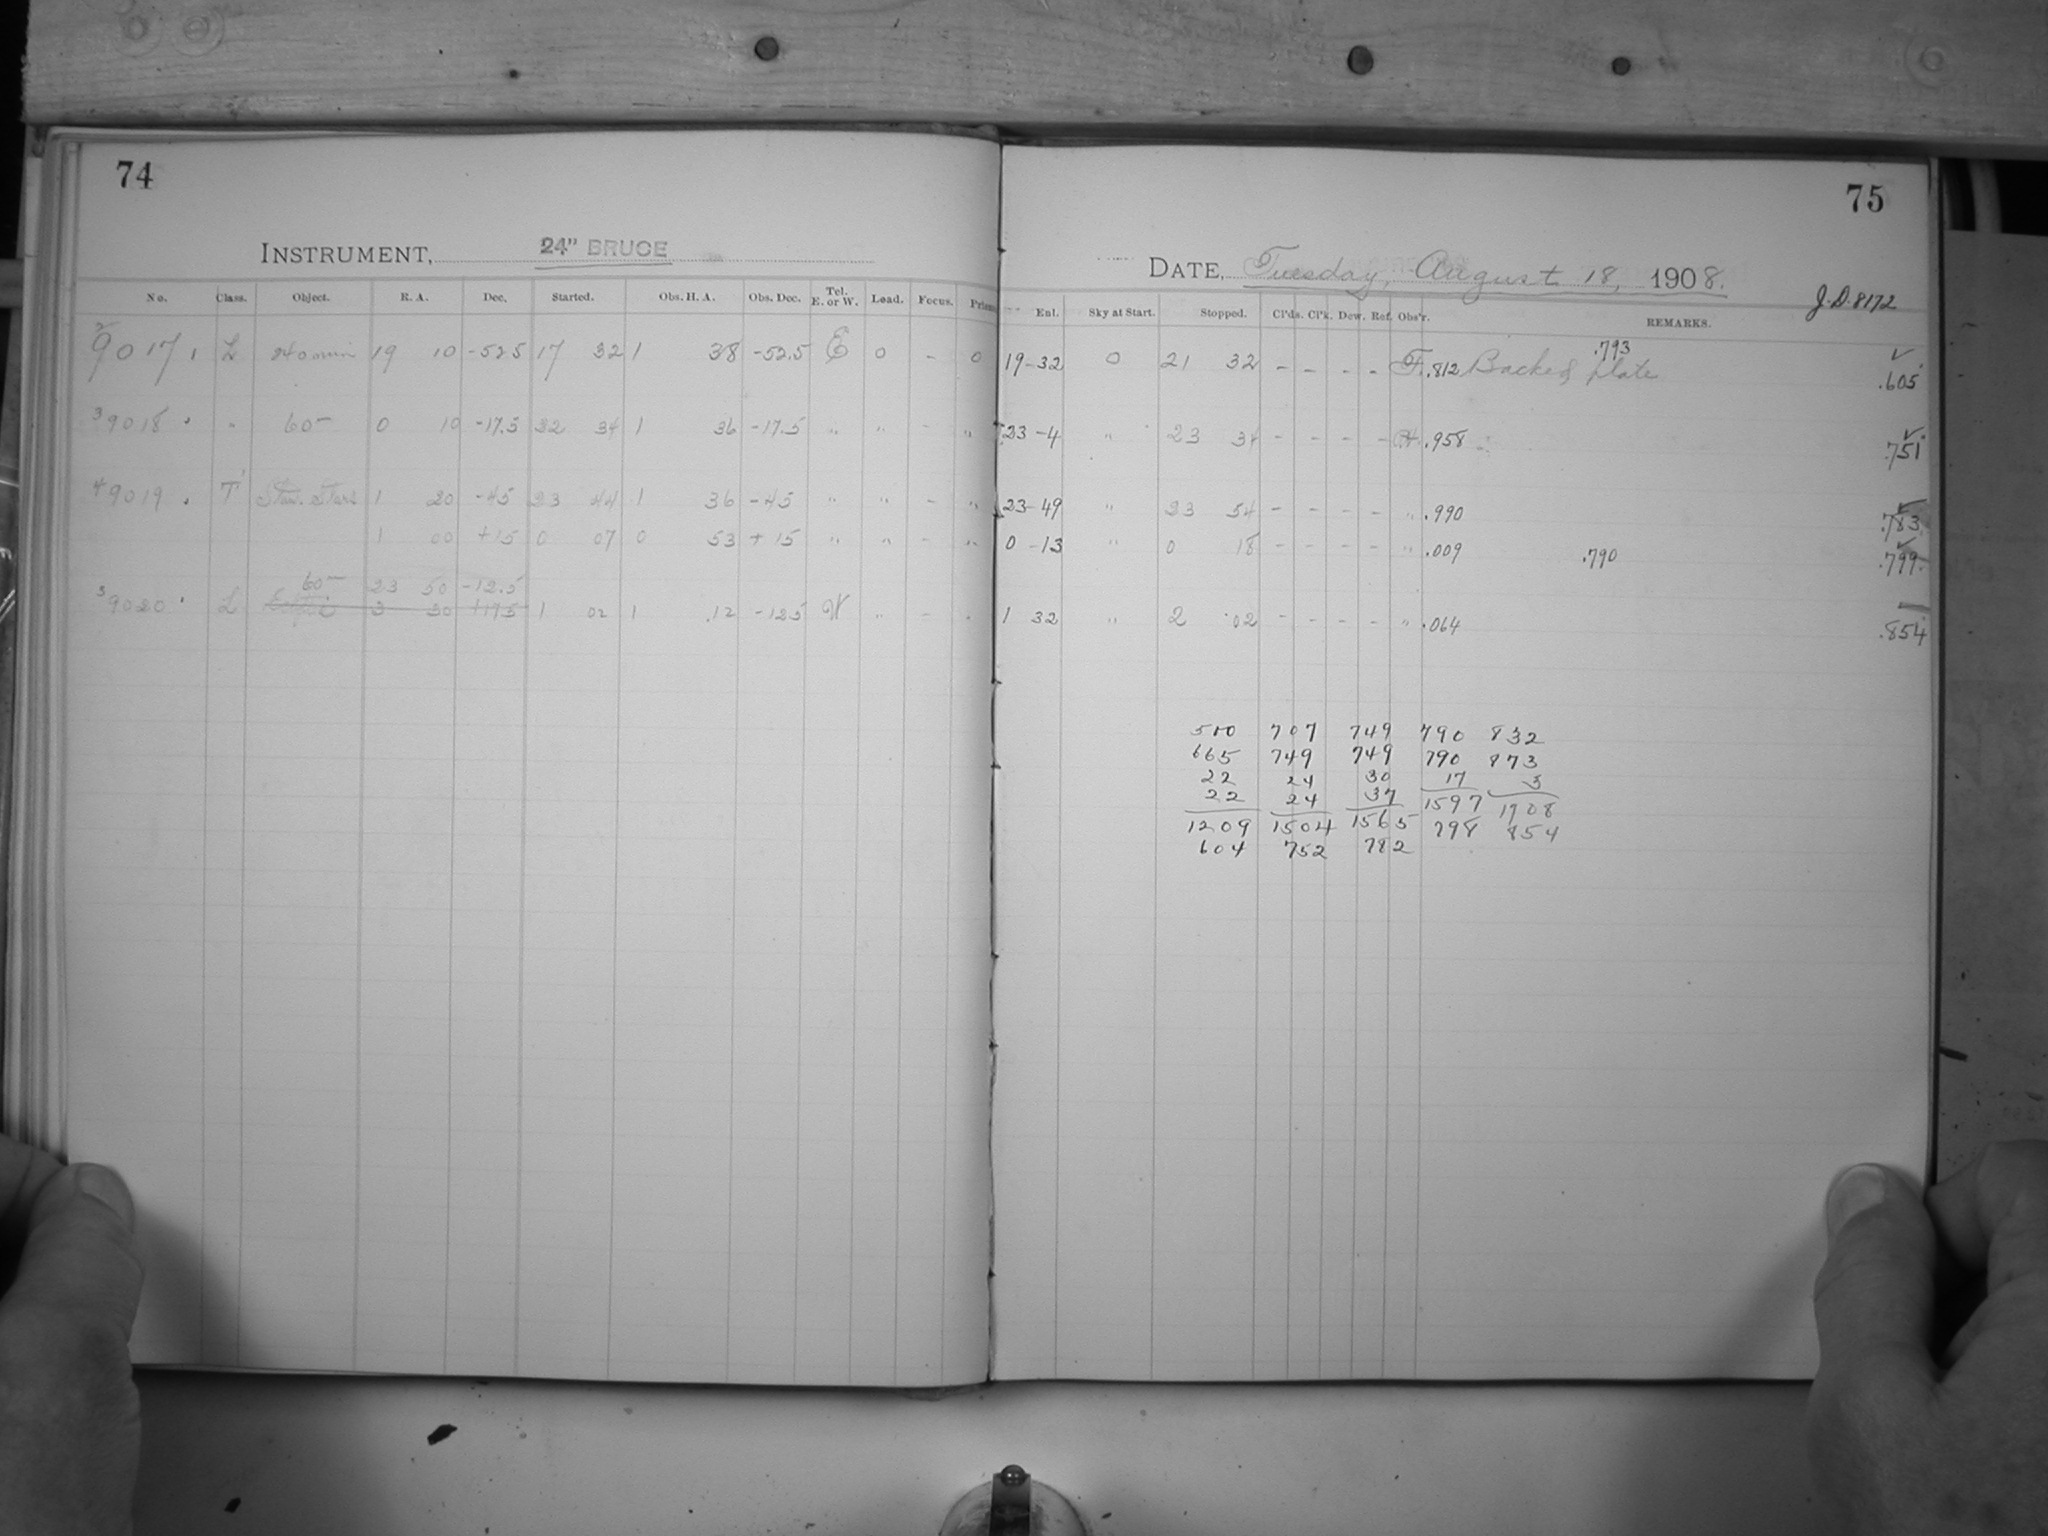 74
INSTRUMENT, 24" BRUCE
No. Class. Object. R. A. Dec. Started. Obs. H. A. Obs. Dec. Tel. E. or W. Load. Focus. Prism
9017 L 240 min 19 10 -52.5 17 32 1 38 -52.5 E 0 - 0
3 9018 " 60 0 10 -17.5 22 34 1 36 -17.5 " " - "
4 9019 T Stan. Stars 1 20 -45 23 44 1 36 -45 " " - "
1 00 +15 0 07 0 53 +15 " " - "
60 23 50 -12.5
3 9020 L 3 30 +17.5 1 02 1 12 -12.5 W " -
75
DATE, Tuesday, August 18, 1908.
J.D. 8172
Ent. Sky at Start. Stopped. Cl'ds. Cl'k. Dew. Ref. Obs'r. REMARKS.
19-32 0 21 32 - - - - F. .812 Backed plate .793 .605
23-4 " 23 34 - - - - .958 .751
23-49 " 23 54 - - - - " .990 .783
0-13 " 0 18 - - - - " .009 .790 .799
1 32 " 2 02 - - - - " .064 .854
500 707 749 790 832
665 749 749 790 873
22 24 30 17 3
22 24 37 1597 1708
1209 1504 1565 798 854
604 752 782